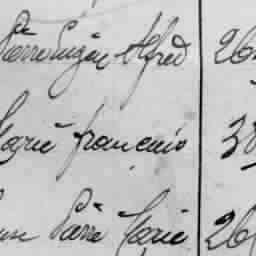 Pierre Eugène Alfred 26
Marie françois 38
Pierre Marie 26